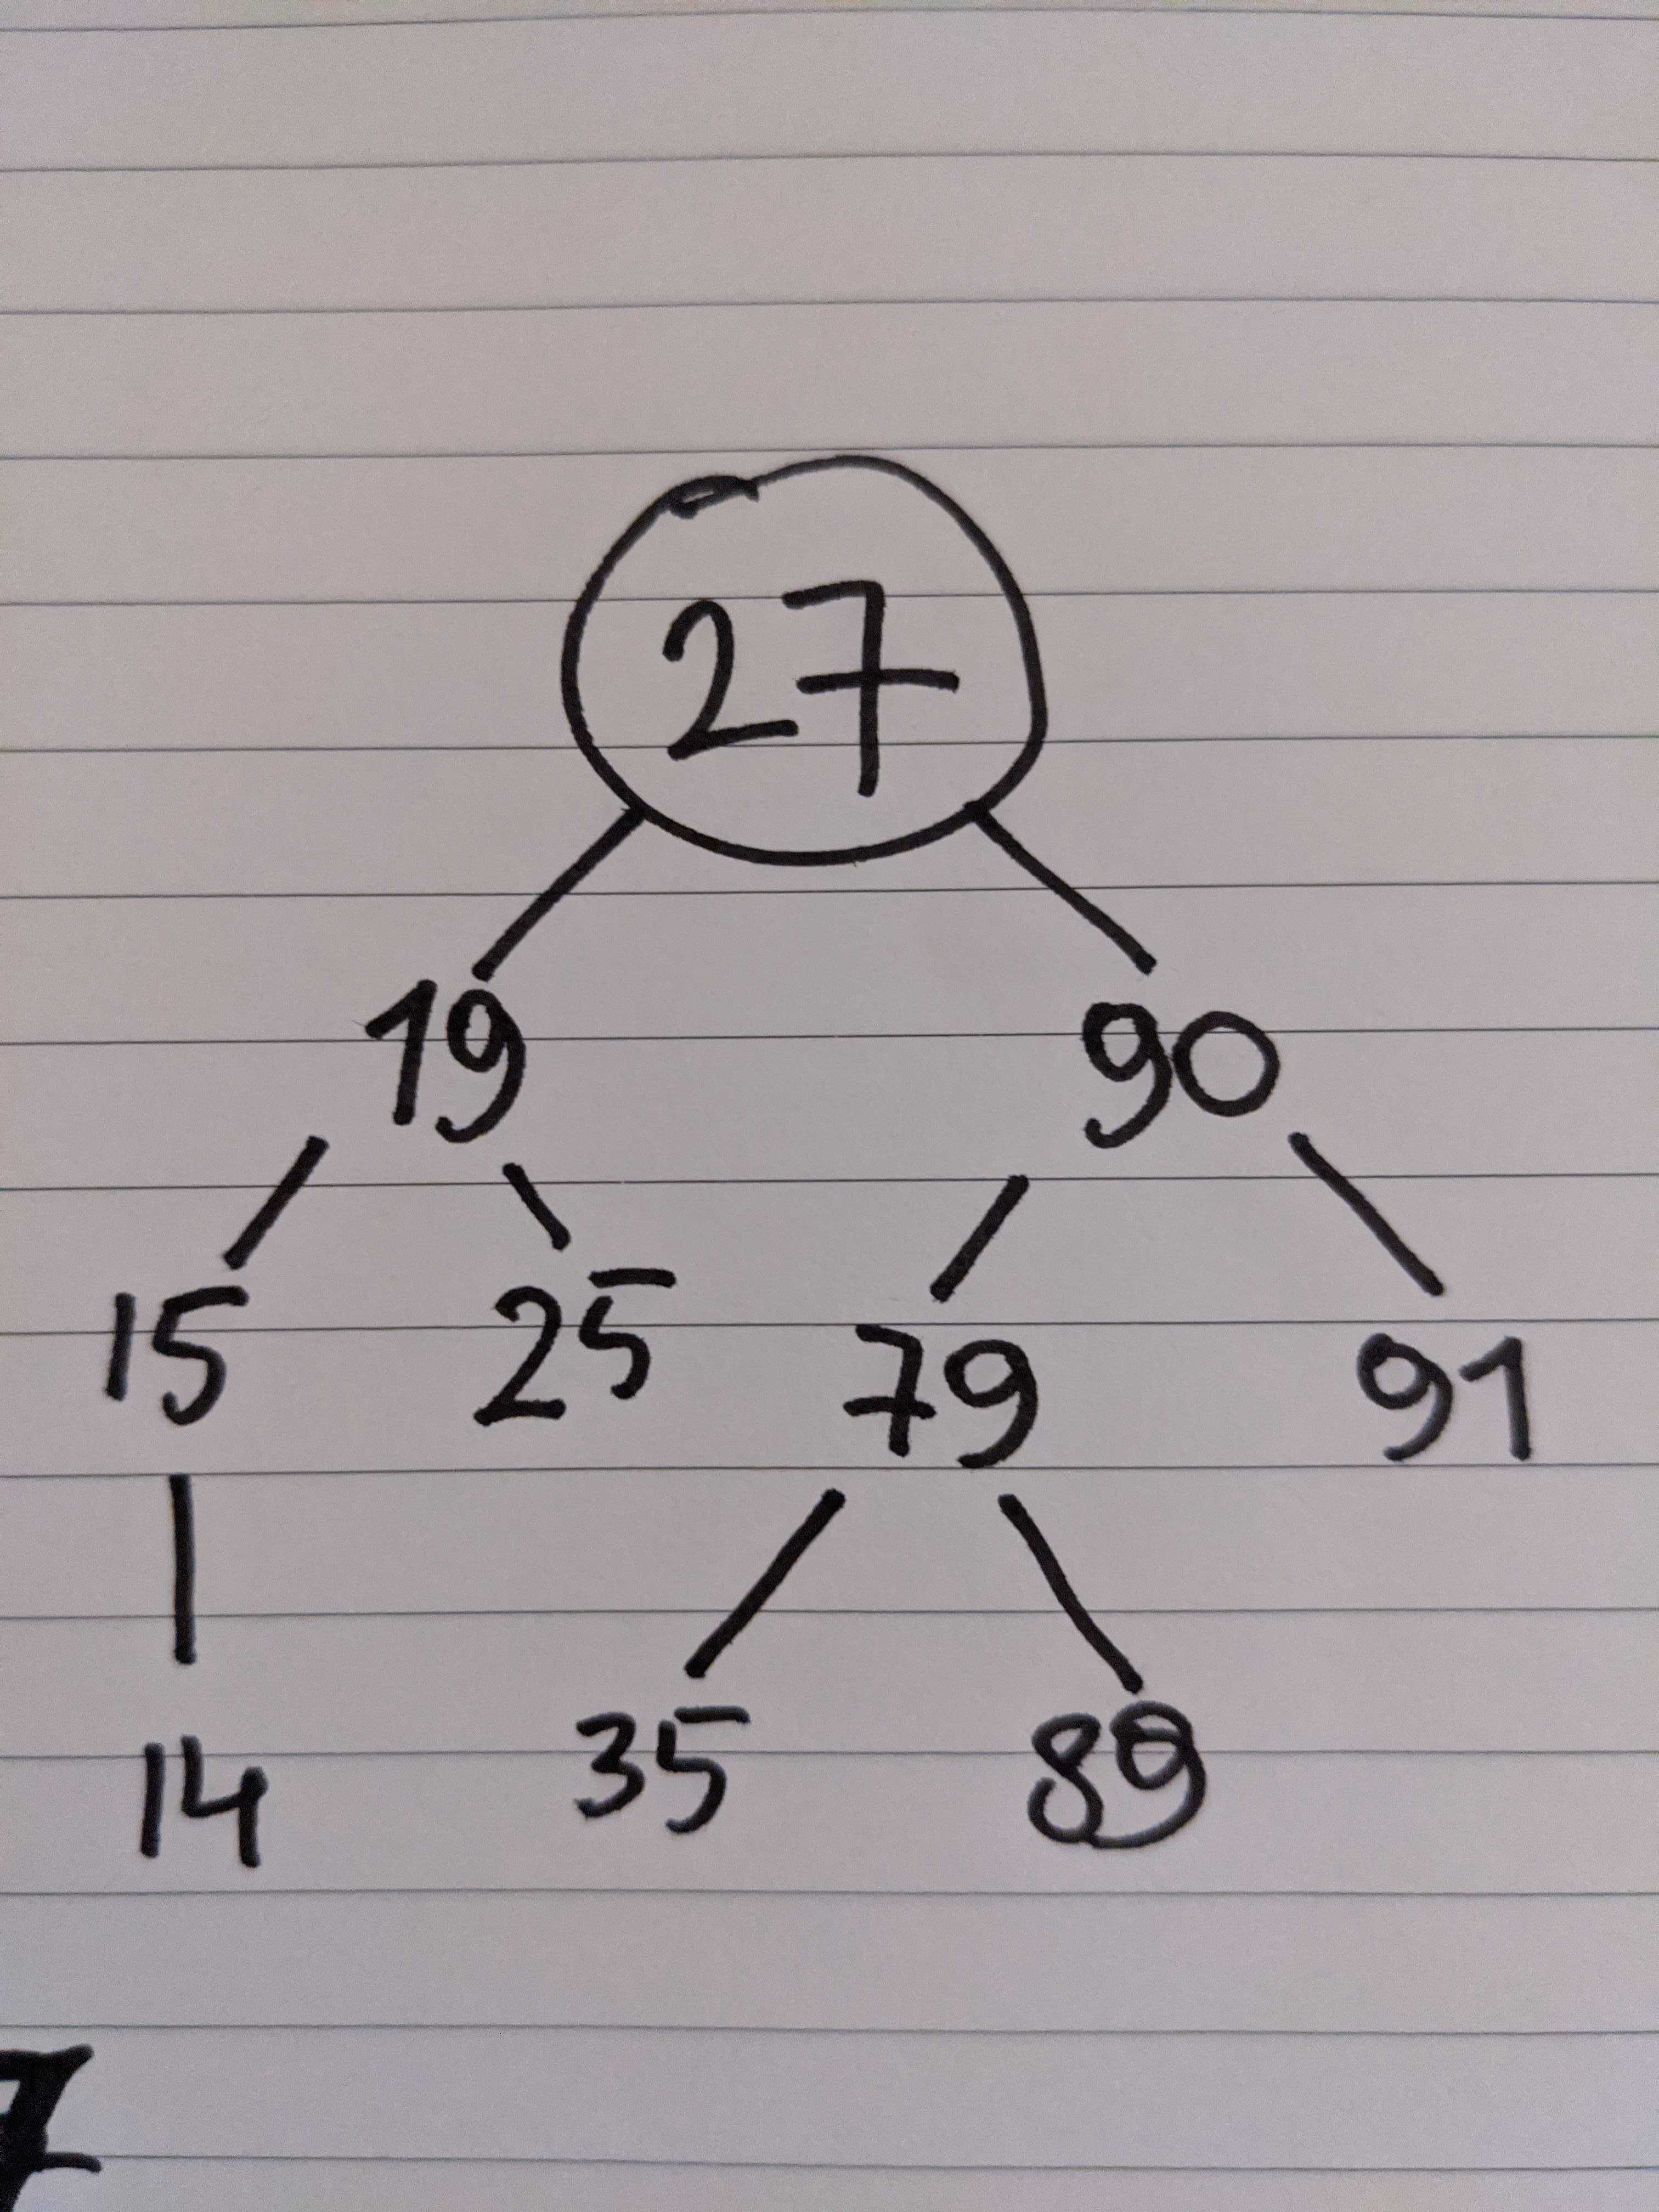 27
19 90
15 25 79 91
14 35 89
7